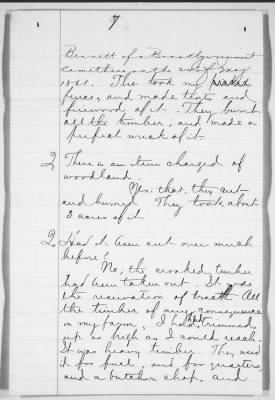 7
Bennett of a Brook Government
Committees
1861. The took my
fences, and made that and
firewood of it. They burnt
all the timber, and made a
perfect wreck of it.
Q There is an item charged of
woodland.
Yes: that, they cut
and burned. They took about
3 acres of it
Q. Had it been cut over much
before?
No, the crooked timber
had been taken out. It was
the reservation of All
the timber of any consequence
on my farm, I had that trimmed
up as high as I could reach.
It was heavy timber. They used
it for fuel, and for quarters,
and a butcher shop, and